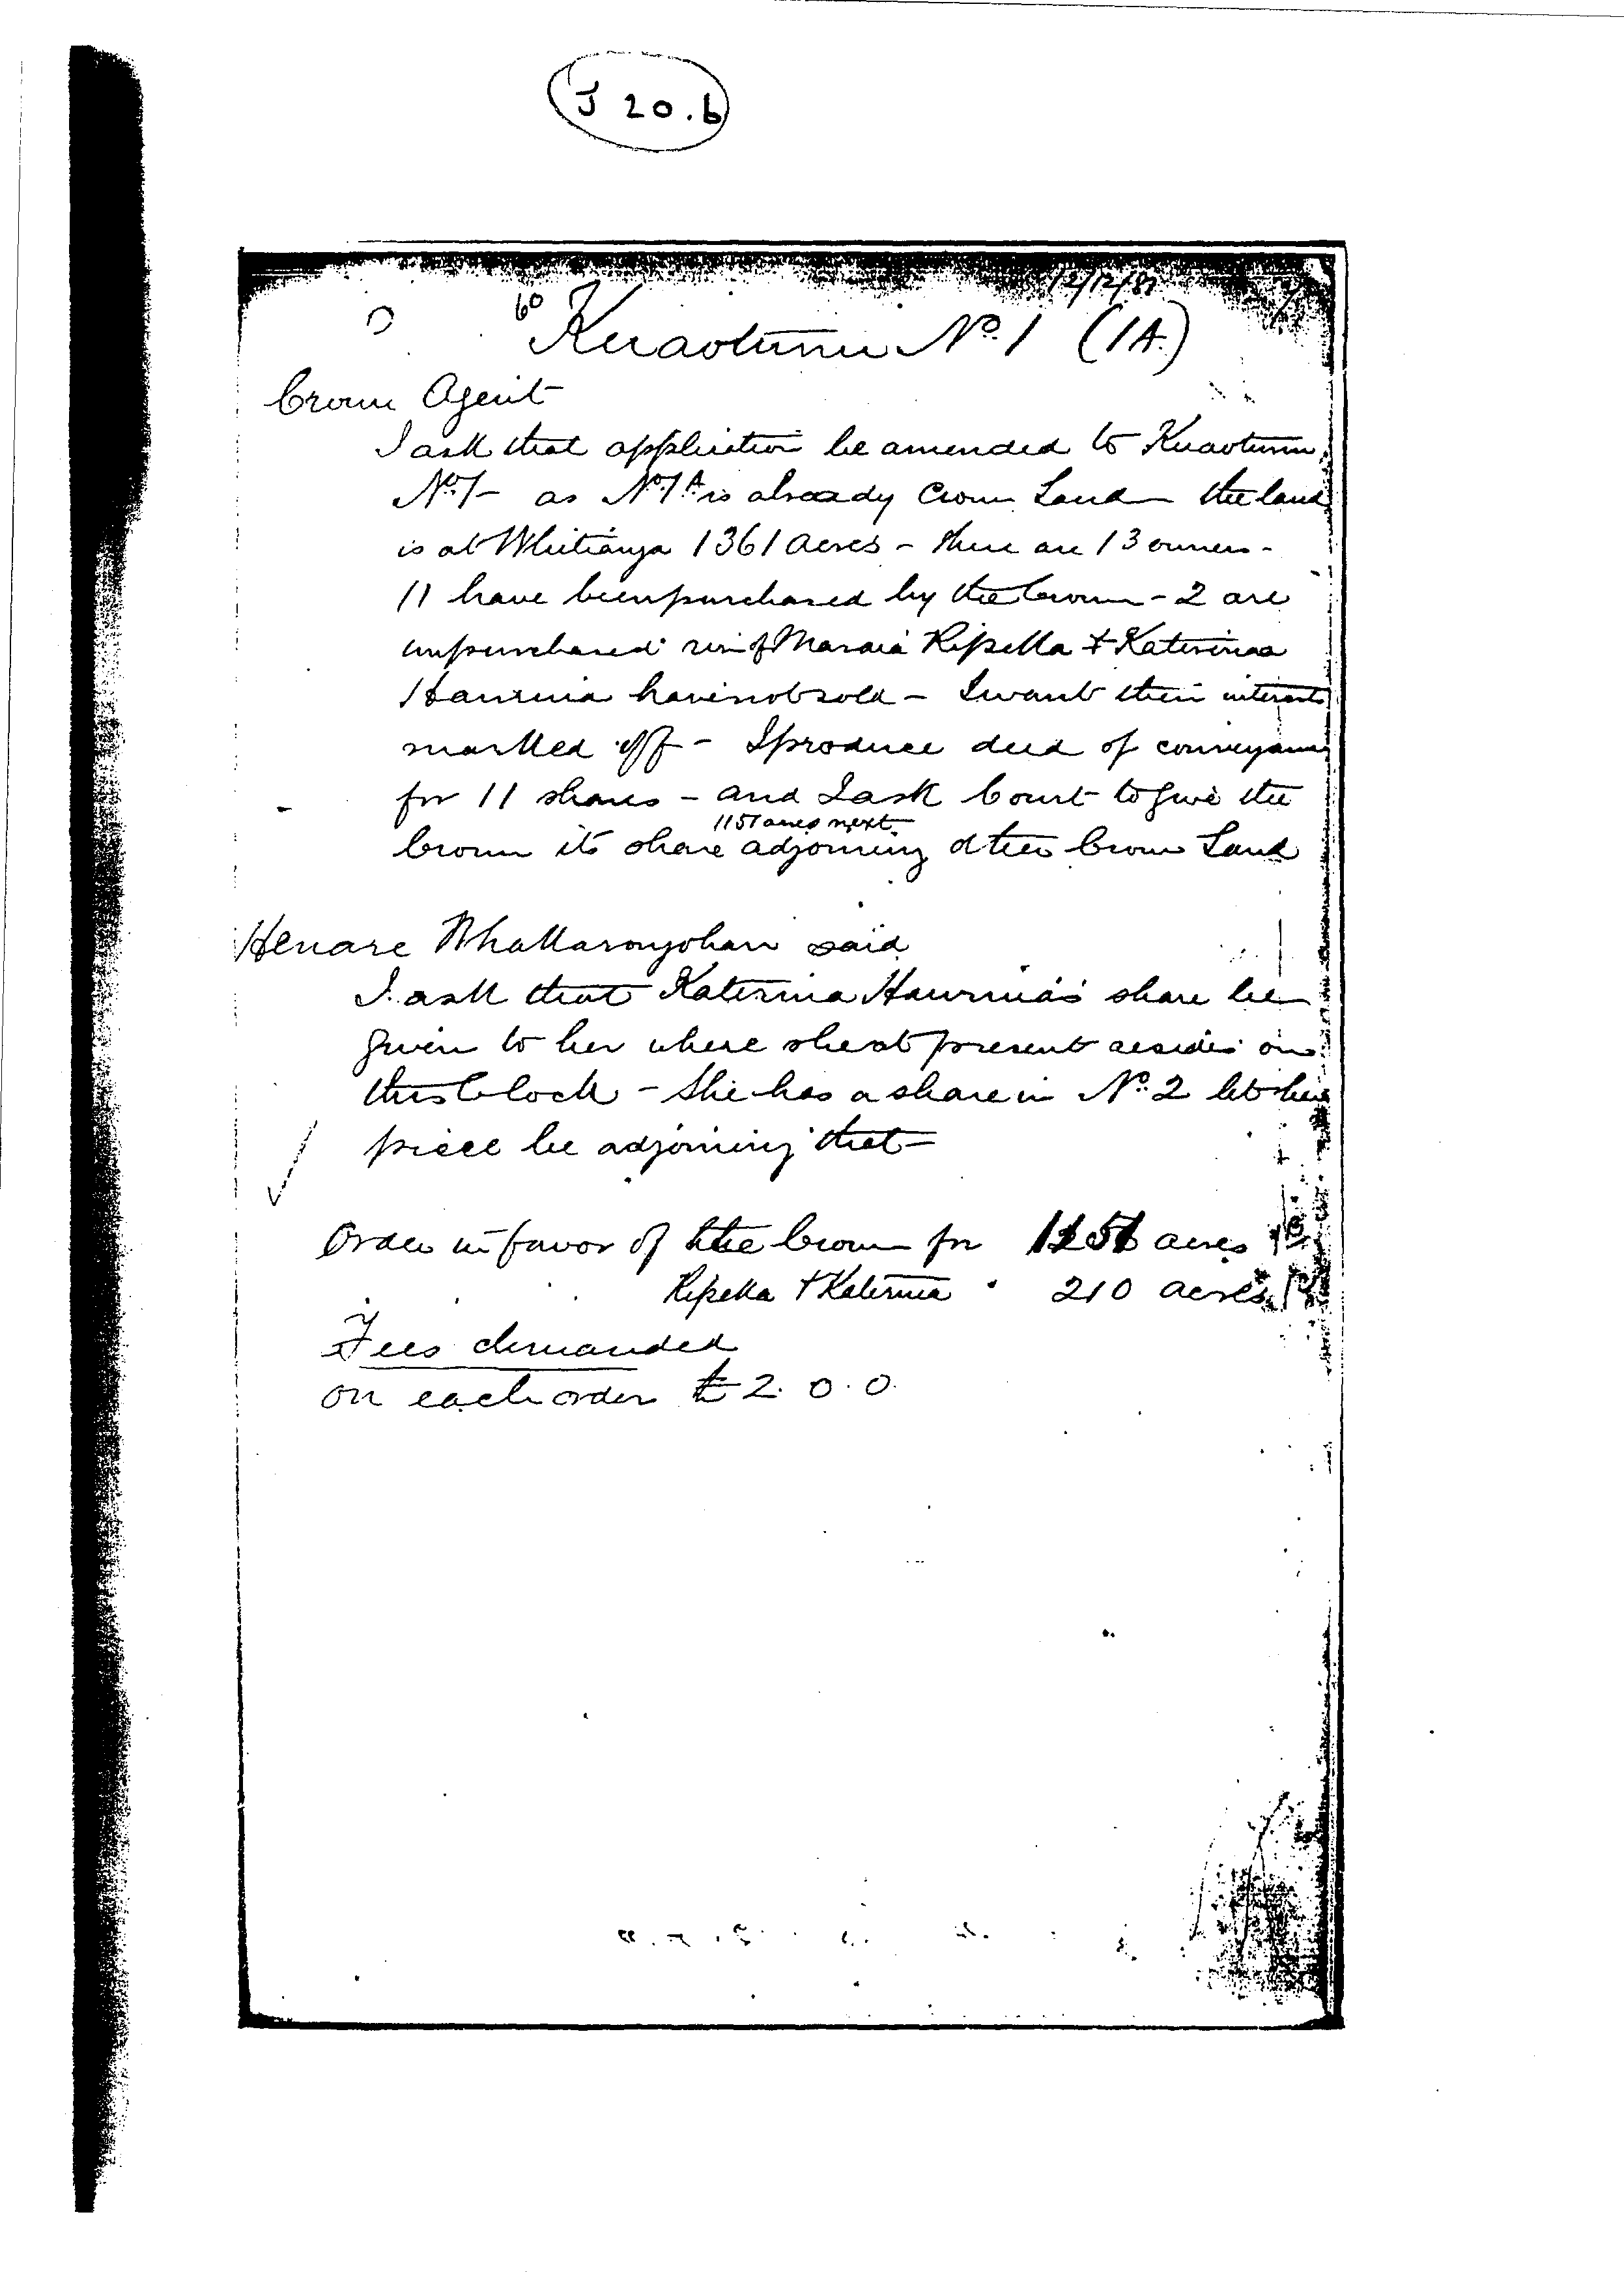 J 20.b
12/12/87
60
Kuaotunu No. 1 (1A.)
Crown Agent
I ask that application be amended to Kuaotunu
No. 1 - as No. 1A is already Crown Land - the land
is at Whitianga 1361 acres - there are 13 owners -
11 have been purchased by the Crown - 2 are
unpurchased Maraia Ripeka & Katerina
Hauruia have not sold - I want their interests
marked off - I produce deed of conveyance
for 11 shares - and I ask Court to give the
1151 acres next
Crown its share adjoining other Crown Land
Henare Whakarongohau said
I ask that Katerina Hauruia's share be
given to her where she at present resides on
this block - She has a share in No. 2 let her
piece be adjoining that -
Order in favor of the Crown for 1151 acres
Ripeka & Katerina " 210 acres
Fees demanded
on each order £2. 0. 0.